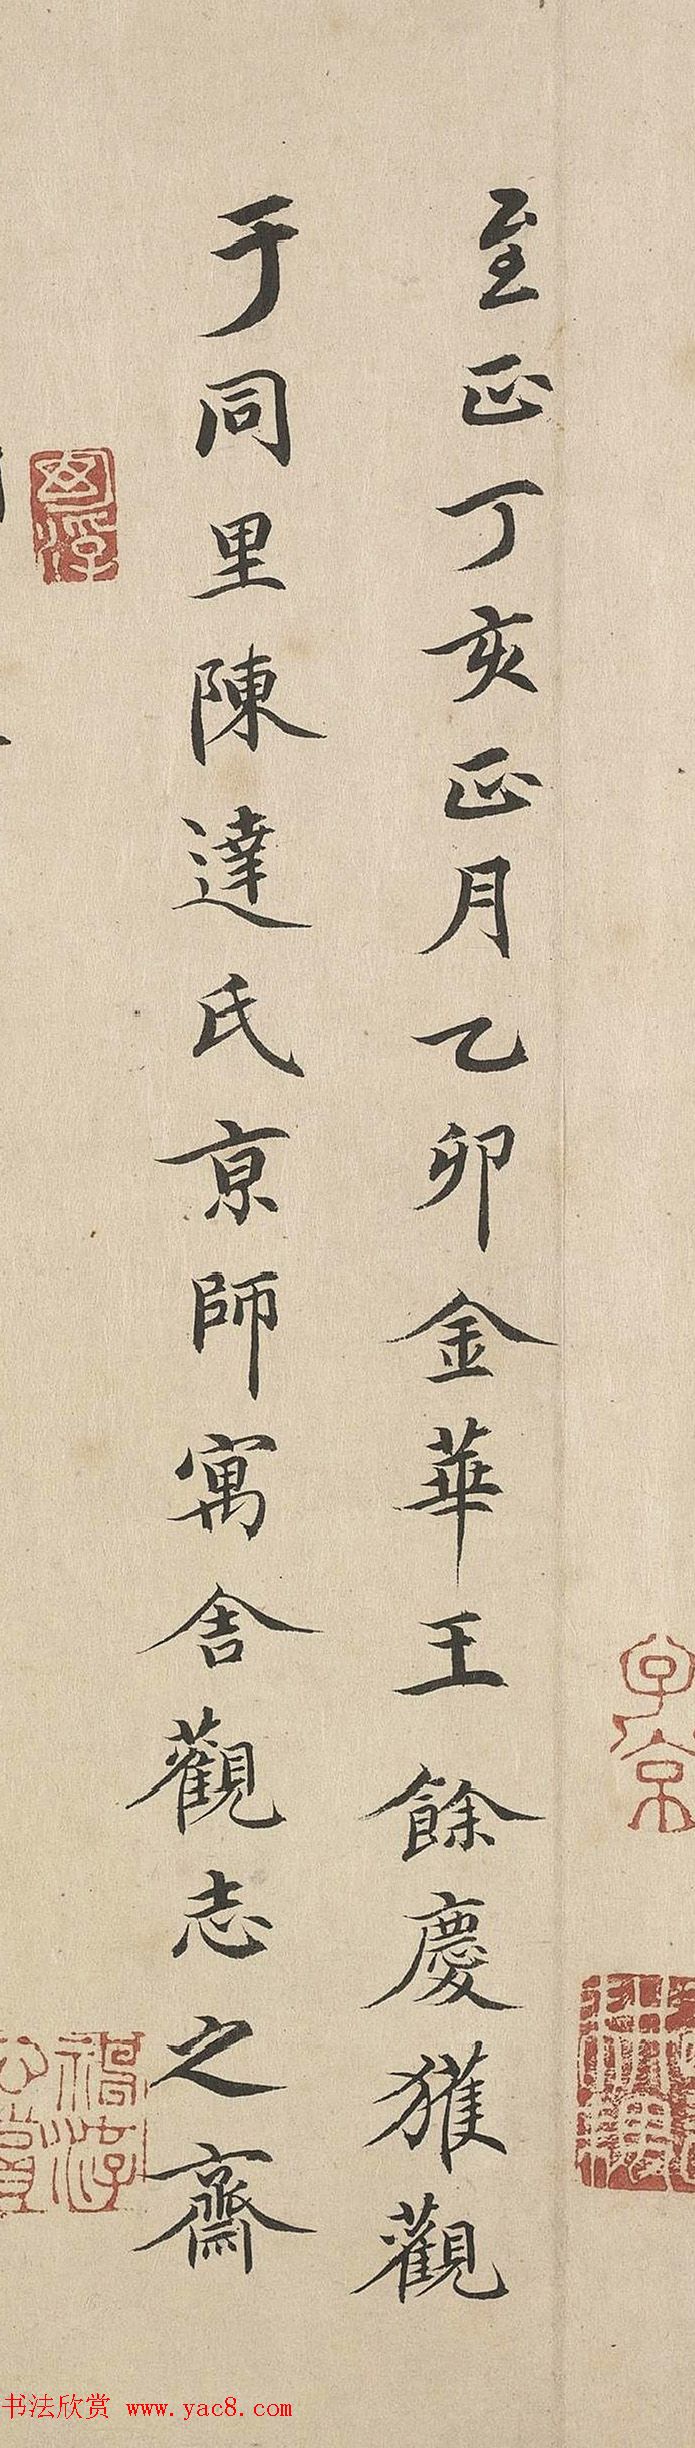 至正丁亥正月乙卯金華王餘慶獲觀
于同里陳達氏京師寓舍觀志之齋
子京
书法欣赏 www.yac8.com